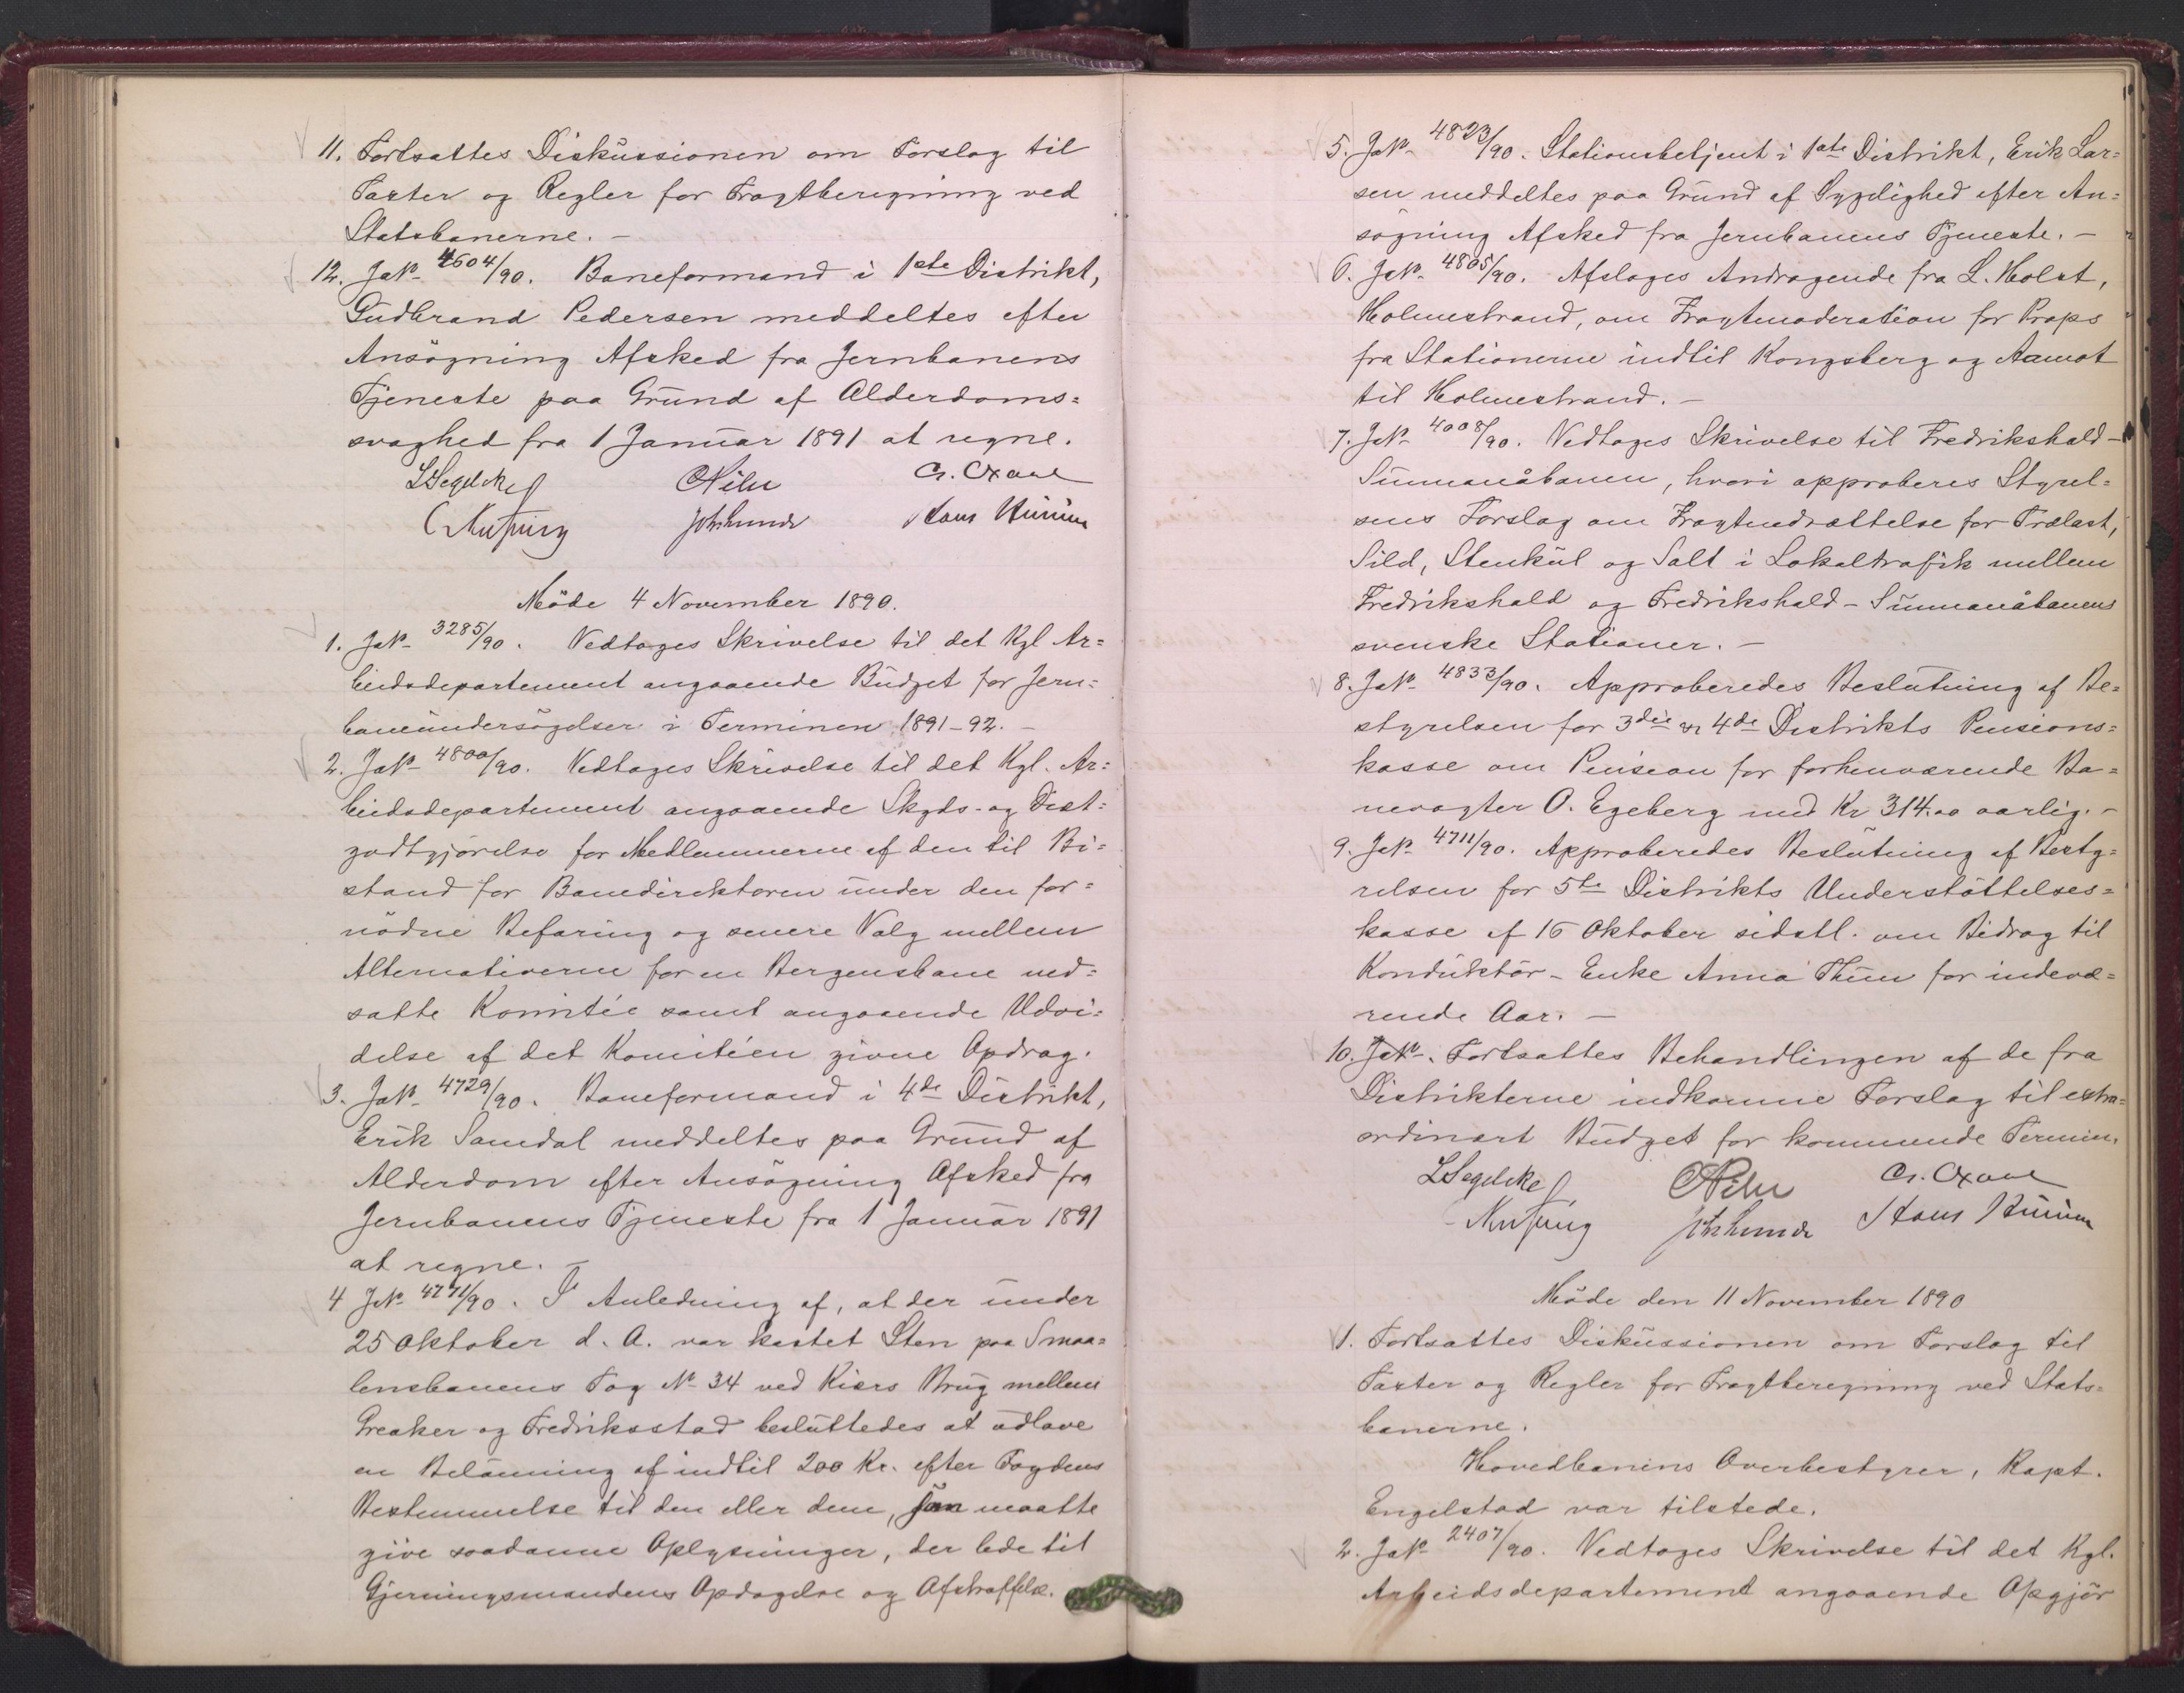 11. Fortsattes Diskussionen om Forslag til
Taxter og Regler for Fragtberegning ved
Statsbanerne. –
12. JN° 4604/90. Baneformand i 1ste Distrikt,
Gudbrand Pedersen meddeltes efter
Ansøgning Afsked fra Jernbanens
Tjeneste paa Grund af Alderdoms=
svaghed fra 1 Januar 1891 at regne.
LSegelcke CPihl
Hans
Møde 4 November 1890.
1. JN° 3285/90. Vedtoges Skrivelse til det Kgl Ar=
beidsdepartement angaaende Budget for Jern=
baneundersøgelser i Terminen 1891-92. –
2. JN° 4800/90. Vedtoges Skrivelse til det Kgl. Ar=
beidsdepartement angaaende Skyds- og Diæt=
godtgjørelse for Medlemmerne af den til Bi=
stand for Banedirektøren under den for=
nødne Befaring og senere Valg mellem
Alternativerne for en Bergensbane ned=
satte Komitée samt angaaende Udvi=
delse af det Komitéen givne Opdrag.
3. JN° 4729/90. Baneformand i 4de Distrikt,
Erik Samdal meddeltes paa Grund af
Alderdom efter Ansøgning Afsked fra
Jernbanens Tjeneste fra 1 Januar 1891
at regne. –
4 JN° 4771/90. I Anledning af, at der under
25 Oktober d. A. var kastet Sten paa Smaa=
lensbanens Tog N° 34 ved Kiærs Brug mellem
Greaker og Fredriksstad besluttedes at udlove
en Belønning af indtil 200 Kr. efter Fogdens
Bestemmelse til den eller dem, som maatte
give saadanne Oplysninger, der lede til
Gjerningsmandens Opdagelse og Afstraffelse.
5. JN° 4823/90. Stationsbetjent i 1ste Distrikt, Erik Lar=
sen meddeltes paa Grund af Sygelighed efter An=
søgning Afsked fra Jernbanens Tjeneste. –
6. JN° 4805/90. Afsloges Andragende fra L. Holst,
Holmestrand, om Fragtmoderation for Props
fra Stationerne indtil Kongsberg og Aamot
til Holmestrand. –
7. JN° 4008/90. Vedtoges Skrivelse til Fredrikshald-
Sunnanåbanen, hvori approberes Styrel=
sens Forslag om Fragtnedsættelse for Trælast,
Sild, Stenkul og Salt i Lokaltrafik mellem
Fredrikshald og Fredrikshald-Sunnanåbanens
svenske Stationer. –
8. JN° 4833/90. Approberedes Beslutning af Be=
styrelsen for 3die og 4de Distrikts Pensions=
kasse om Pension for forhenværende Ba=
nevogter O. Egeberg med Kr 314.00 aarlig. –
9. JN° 4711/90. Approberedes Beslutning af Besty=
relsen for 5te Distrikts Understøttelses=
kasse af 16 Oktober sidstl. om Bidrag til
Konduktør-Enke Anna Thun for indevæ=
rende Aar. –
10. JN°. Fortsattes Behandlingen af de fra
Distrikterne indkomne Forslag til extra=
ordinært Budget for kommende Termin.
LSegelcke CPihl
Hans
Møde den 11 November 1890
1. Fortsattes Diskussionen om Forslag til
Taxter og Regler for Fragtberegning ved Stats=
banerne.
Hovedbanens Overbestyrer, Kapt.
Engelstad var tilstede.
2. JN° 2407/90. Vedtoges Skrivelse til det Kgl.
Arbeidsdepartement angaaende Opgjør